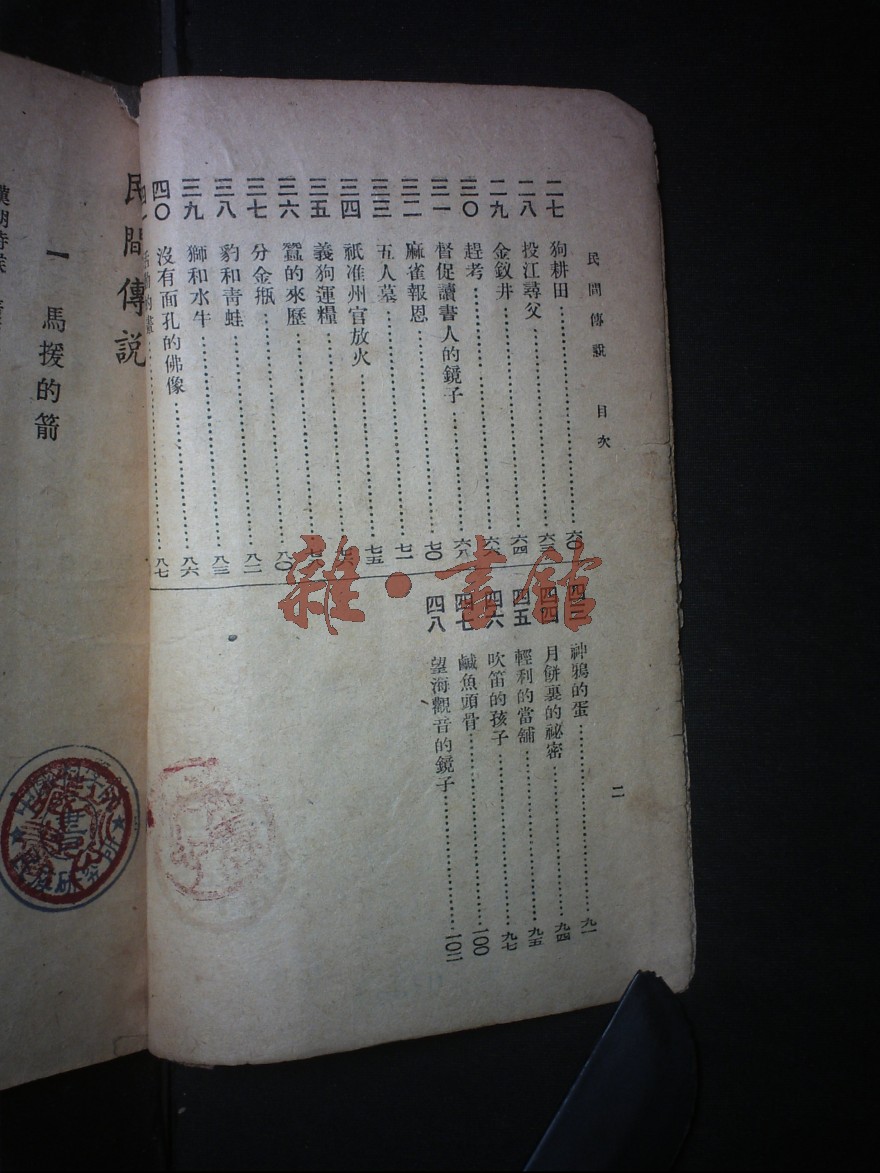 民間傳說 目次 二
二七 狗耕田 六〇
二八 投江尋父 六三
二九 金釵井 六四
三〇 趕考 六六
三一 督促讀書人的鏡子 六八
三二 麻雀報恩 七〇
三三 五人墓 七一
三四 祇准州官放火 七五
三五 義狗運糧
三六 蠶的來歷
三七 分金瓶 八〇
三八 豹和靑蛙 八二
三九 獅和水牛 八三
四〇 沒有面孔的佛像 八六
八七
四三 神鴉的蛋 九一
四四 月餅裏的祕密 九四
四五 輕利的當舖 九五
四六 吹笛的孩子 九七
四七 鹹魚頭骨 一〇〇
四八 望海觀音的鏡子 一〇二
民間傳說
一 馬援的箭
雜·書館